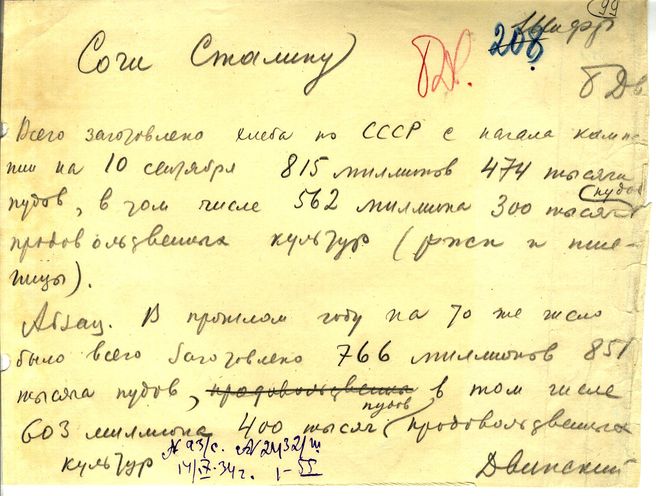 99
Шифр
208
Сочи Сталину
БД.
БДв
Всего заготовлено хлеба по СССР с начала кампа
нии на 10 сентября 815 миллионов 474 тысячи
пудов, в том числе 562 миллиона 300 тысяч пудов
продовольственных культур (ржи и пше-
ницы).
Абзац. В прошлом году на то же число
было всего заготовлено 766 миллионов 851
тысяча пудов, продовольственных в том числе
603 миллиона 400 тысяч пудов продовольственных
культур
N 93/с. N 2432/ш
14/IX-34г. 1-55
Двинский